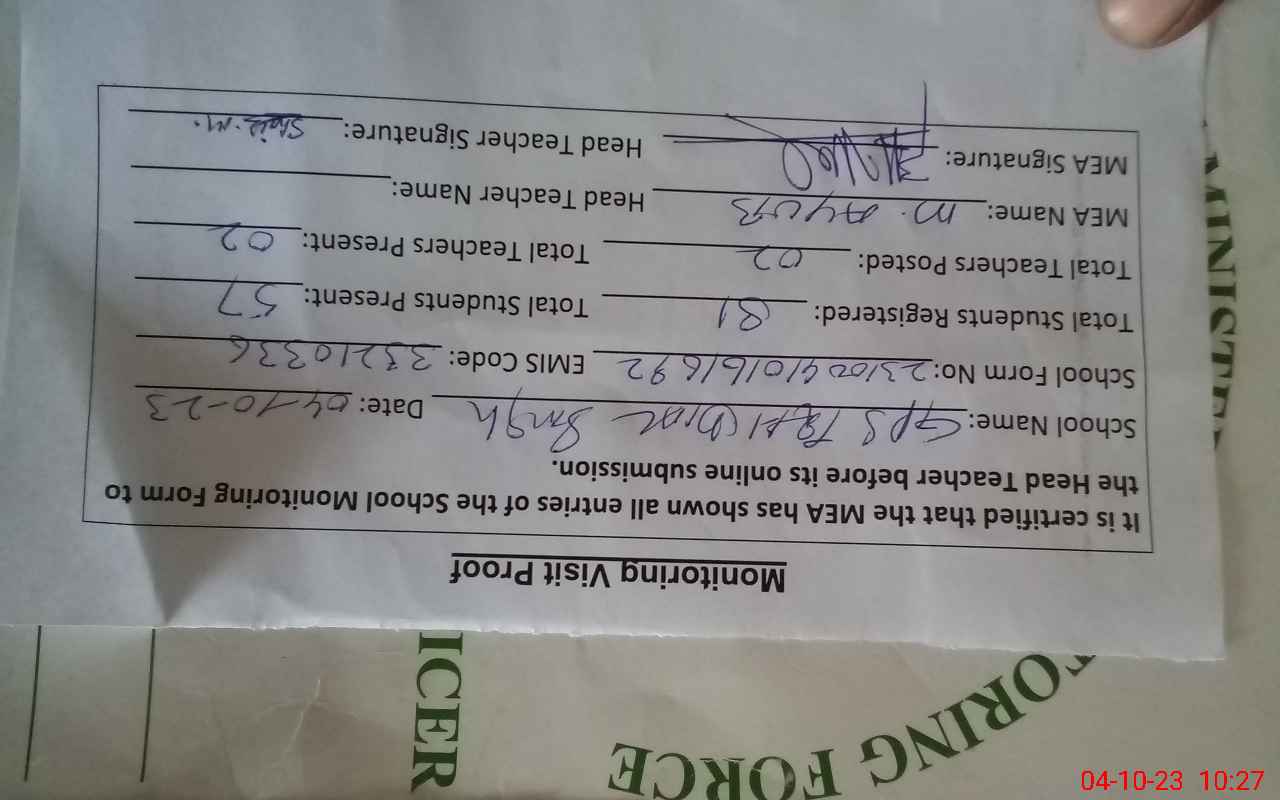 Monitoring Visit Proof
It is certified that the MEA has shown all entries of the School Monitoring Form to
the Head Teacher before its online submission.
School Name: GPS Singh Date: 04-10-23
School Form No: 23100410161692 EMIS Code: 33210336
Total Students Registered: 81 Total Students Present: 57
Total Teachers Posted: 02 Total Teachers Present: 02
MEA Name: M. Ayub Head Teacher Name:
MEA Signature: Head Teacher Signature:
TORING FORCE
ICER
MINISTE
04-10-23 10:27